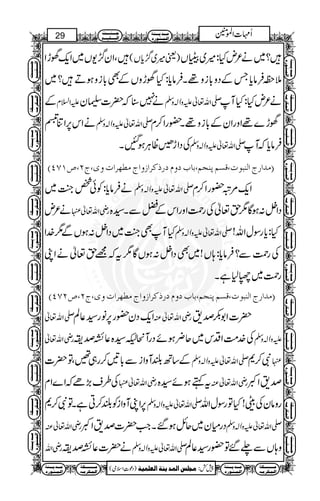 اُمہات المؤمنین
29
ہیں؟ میں نے عرض کیا: میری بیٹیاں (یعنی میری گڑیاں) ہیں، ان گڑیوں میں ایک گھوڑا
ملاحظہ فرمایا جس کے دو بازو تھے۔ فرمایا: کیا گھوڑوں کے بھی بازو ہوتے ہیں؟ میں نے
عرض کیا: کیا آپ صلی اللہ تعالیٰ علیہ والہ وسلم نے نہیں سنا کہ حضرت سلیمان علیہ السلام کے
گھوڑے تھے اور ان کے بازو تھے۔ حضور اکرم صلی اللہ تعالیٰ علیہ والہ وسلم نے اس پر اتنا تبسم
فرمایا کہ آپ صلی اللہ تعالیٰ علیہ والہ وسلم کی داڑھیں ظاہر ہوگئیں۔
(مدارج النبوت، قسم پنجم، باب دوم در ذکر ازواج مطهرات وی، ج۲، ص۴۷۱)
ایک مرتبہ حضور اکرم صلی اللہ تعالیٰ علیہ والہ وسلم نے فرمایا: کوئی شخص جنت میں
داخل نہ ہوگا مگر حق تعالیٰ کی رحمت اور اس کے فضل سے۔ سیدہ رضی اللہ تعالیٰ عنہا نے عرض
کیا: یا رسول اللہ! صلی اللہ تعالیٰ علیہ والہ وسلم کیا آپ بھی جنت میں داخل نہ ہوں گے مگر خدا
کی رحمت سے؟ فرمایا: ہاں! میں بھی داخل نہ ہوں گا مگر یہ کہ مجھے حق تعالیٰ نے اپنی
رحمت میں چھپالیا ہے۔
(مدارج النبوت، قسم پنجم، باب دوم در ذکر ازواج مطهرات وی، ج۲، ص۴۷۲)
حضرت ابوبکر صدیق رضی اللہ تعالیٰ عنہ ایک دن حضور پر نور سید عالم صلی اللہ تعالیٰ
علیہ والہ وسلم کی خدمت اقدس میں حاضر ہوئے درآنحالیکہ سیدہ عائشہ صدیقہ رضی اللہ تعالیٰ
عنہا نبی کریم صلی اللہ تعالیٰ علیہ والہ وسلم کے ساتھ بلند آواز سے باتیں کر رہی تھیں، تو حضرت
صدیق اکبر رضی اللہ تعالیٰ عنہ یہ کہتے ہوئے سیدہ رضی اللہ تعالیٰ عنہا کی طرف بڑھے کہ اے ام
رومان کی بیٹی! کیا تو رسول اللہ صلی اللہ تعالیٰ علیہ والہ وسلم پر اپنی آواز کو بلند کرتی ہے۔ تو نبی کریم
صلی اللہ تعالیٰ علیہ والہ وسلم درمیان میں حائل ہوگئے۔ جب حضرت صدیق اکبر رضی اللہ تعالیٰ عنہ
وہاں سے چلے گئے تو حضور سید عالم صلی اللہ تعالیٰ علیہ والہ وسلم نے حضرت عائشہ صدیقہ رضی اللہ
پیش کش: مجلس المدینۃ العلمیۃ (دعوت اسلامی)